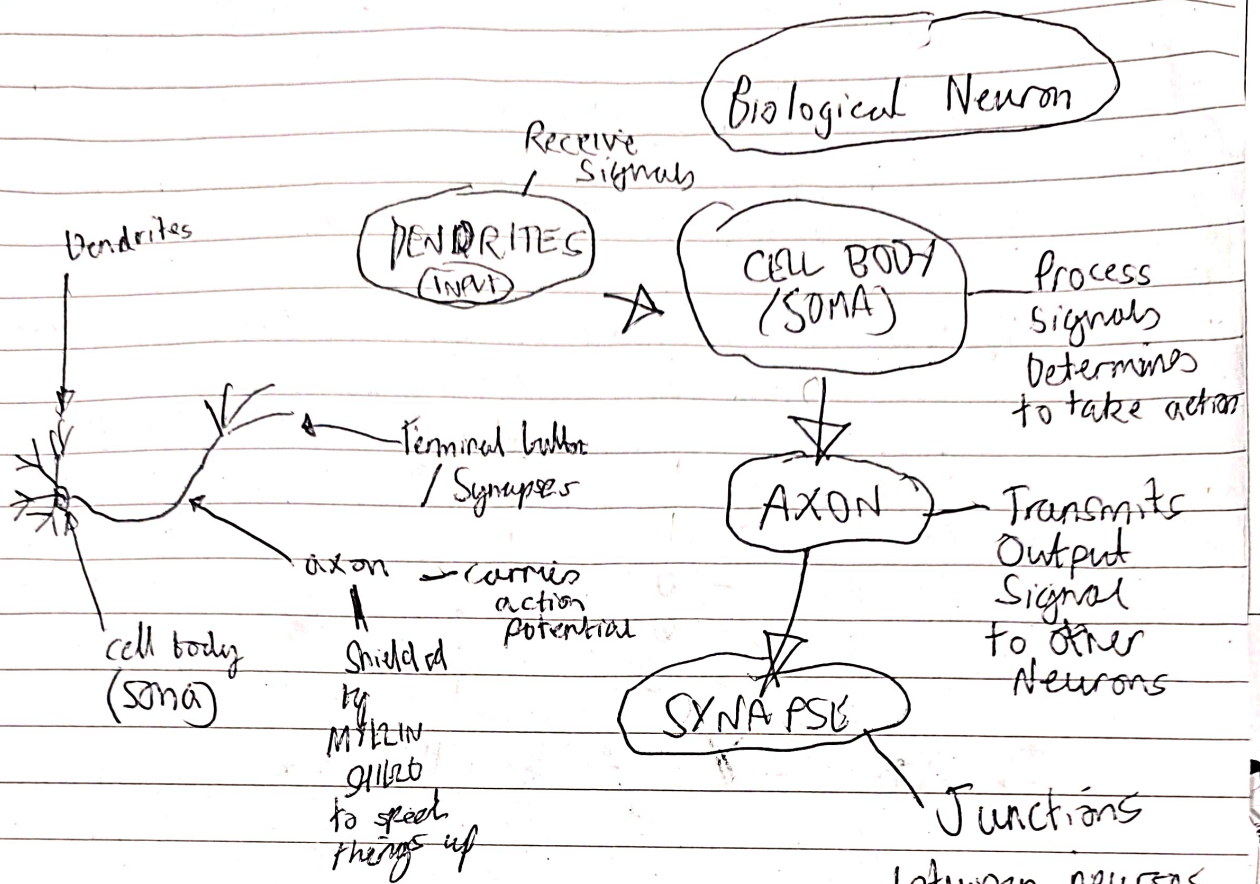 Biological Neuron
Receive
Signals
DENDRITES
INPUT
CELL BODY
(SOMA)
Process
signals
Determines
to take action
AXON
Transmits
Output
Signal
to other
Neurons
SYNAPSE
Junctions
between neurons
Dendrites
Terminal button
/ Synapses
axon - carries
action
potential
Shielded
by
to speed
things up
cell body
(soma)